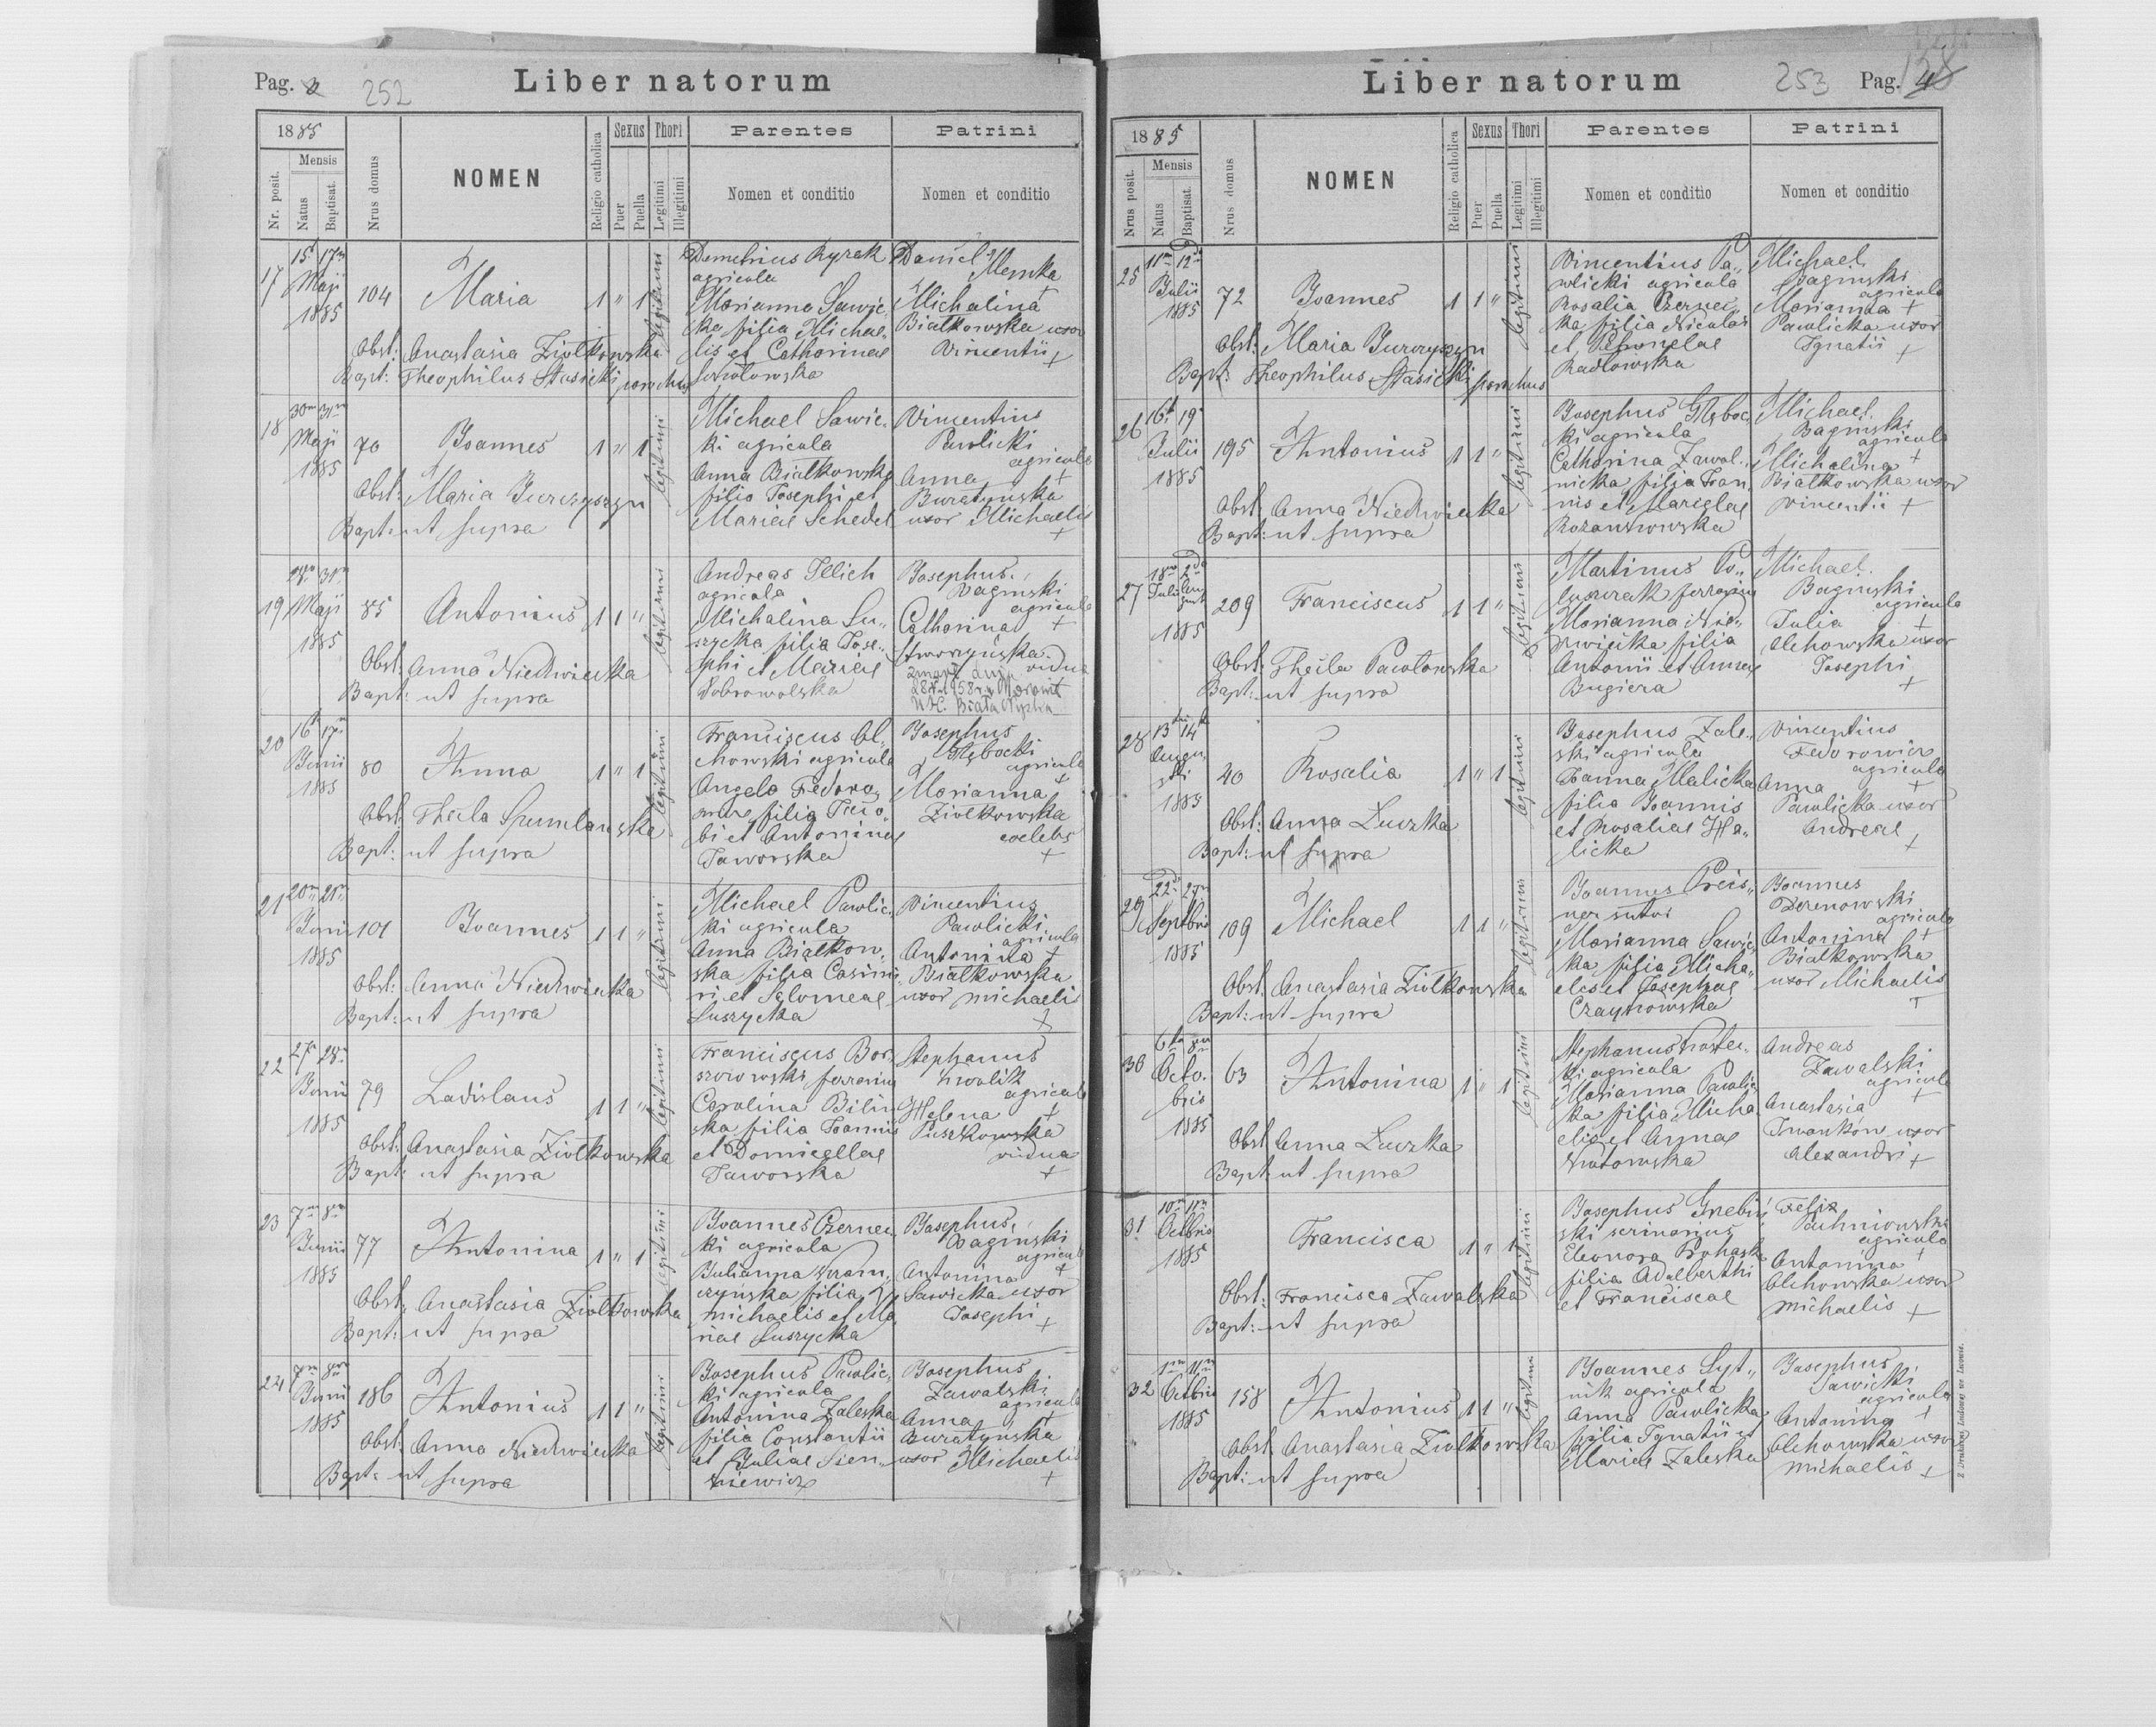 Pag. 252
Liber natorum
1885
Nr. posit.
Mensis
Natus
Baptisat.
Nrus domus
NOMEN
Religio catholica
Sexus
Puer
Puella
Thori
Legitimi
Illegitimi
Parentes
Nomen et conditio
Patrini
Nomen et conditio
17
15 17
Maji
1885
104
Maria
1 " 1
legitimi
Obst: Anastasia Ziolkowska
Bapt: Theophilus Stasicki parochus
Demetrius Kyrek
agricola
Marianna Sawic-
ka filia Michae-
lis et Catharinae
Daniel
Michalina
Bialkowska uxor
Vincentii +
18
30 31
Maji
1885
70
Joannes
1 " 1
legitimi
Obst: Maria Jurczyszyn
Bapt: ut supra
Michael Sawic-
ki agricola
Anna Bialkowska
filia Josephi et
Mariae Schedel
Vincentius
Pawlicki
agricola
Anna +
Buratynska
uxor Michaelis
+
19
28 31
Maji
1885
85
Antonius
1 1 "
legitimi
Obst: Anna Niedzwiecka
Bapt: ut supra
Andreas Illich
agricola
Michalina Su-
szycka filia Jose-
phi et Mariae
Dobrowolska
Josephus
Baginski
agricola
Catharina +
Skworzynska
vidua
20
16 17
Junii
1885
80
Anna
1 " 1
legitimi
Obst: Thecla Szumlanska
Bapt: ut supra
Franciscus Ol-
chowski agricola
Angela Fedoro-
wicz filia Jaco-
bi et Antoninae
Jaworska
Josephus
Głębocki
agricola
+
Marianna
Ziolkowska
coelebs
+
21
20 21
Junii
1885
101
Joannes
1 1 "
legitimi
Obst: Anna Niedzwiecka
Bapt: ut supra
Michael Pawlic-
ki agricola
Anna Bialkow-
ska filia Casimi-
ri et Salomeae
Suszycka
Vincentius
Pawlicki
agricola
Antonina +
Bialkowska
uxor Michaelis
+
22
27 28
Junii
1885
79
Ladislaus
1 1 "
legitimi
Obst: Anastasia Ziolkowska
Bapt: ut supra
Franciscus Bor-
Carolina Bilin-
ska filia Joannis
et Domicellae
Jaworska
Stephanus
Krolik
agricola
Helena +
Puszkowska
vidua
+
23
7 8
Junii
1885
77
Antonina
1 " 1
legitimi
Obst: Anastasia Ziolkowska
Bapt: ut supra
Joannes Czernec-
ki agricola
Julianna Kram-
czynska filia
Michaelis et Ma-
riae Suszycka
Josephus
Baginski
agricola
Antonina +
Sawicka uxor
Josephi +
24
7 8
Junii
1885
186
Antonius
1 1 "
legitimi
Obst: Anna Niedzwiecka
Bapt: ut supra
Josephus Pawlic-
ki agricola
Antonina Zaleska
filia Constantii
et Juliae Sien-
kiewicz
Josephus
Zawalski
agricola
Anna +
Buratynska
uxor Michaelis
+
Liber natorum
253 Pag. 4
1885
Nrus posit.
Mensis
Natus
Baptisat.
Nrus domus
NOMEN
Religio catholica
Sexus
Puer
Puella
Thori
Legitimi
Illegitimi
Parentes
Nomen et conditio
Patrini
Nomen et conditio
25
11 12
Julii
1885
72
Joannes
1 1 "
legitimi
Obst: Maria Jurczyszyn
Bapt: Theophilus Stasicki parochus
Vincentius Pa-
wlicki agricola
Rosalia Czernec-
ka filia Nicolai
et Petronelae
Radlowska
Michael
Baginski
agricola
Marianna +
Pawlicka uxor
Ignatii +
26
16 19
Julii
1885
195
Antonius
1 1 "
legitimi
Obst: Anna Niedzwiecka
Bapt: ut supra
Josephus Głęboc-
ki agricola
Catharina Zawal-
nicka filia Joan-
nis et Marcelae
Michael
Baginski
agricola
Michalina +
Bialkowska uxor
Vincentii +
27
18 2
Julii
1885
209
Franciscus
1 1 "
legitimi
Obst: Thecla Pawlowska
Bapt: ut supra
Martinus
Marianna Nie-
dzwiecka filia
Antonii et Annae
Bugiera
Michael
Baginski
agricola
Julia +
Olchowska uxor
Josephi
+
28
13 14
Augu-
sti
1885
40
Rosalia
1 " 1
legitimi
Obst: Anna Luczka
Bapt: ut supra
Josephus Zale-
ski agricola
Joanna Malicka
filia Joannis
et Rosaliae Ha-
licka
Vincentius
Fedorowicz
agricola
Anna +
Pawlicka uxor
Andreae +
29
22 27
Septbris
1885
109
Michael
1 1 "
legitimi
Obst: Anastasia Ziolkowska
Bapt: ut supra
Joannes Preis-
ner sutor
Marianna Sawic-
ka filia Micha-
elis et Josephae
Czaykowska
Joannes
Derenowski
agricola
Antonina +
Bialkowska
uxor Michaelis
+
30
6 8
Octo-
bris
1885
63
Antonina
1 " 1
legitimi
Obst: Anna Luczka
Bapt: ut supra
Stephanus Kostec-
ki agricola
Marianna Pawlic-
ka filia Micha-
elis et Annae
Andreas
Zawalski
agricola
+
Anastasia
Iwankow uxor
Alexandri +
31
10 11
Octbris
1885
Francisca
1 " 1
legitimi
Obst: Francisca Zawalska
Bapt: ut supra
Josephus Grebin-
ski scrinarius
Eleonora Prohaska
filia Adalberthi
et Franciscae
Felix
agricola
Antonina +
Olchowska uxor
Michaelis +
32
1 11
Octbris
1885
158
Antonius
1 1 "
legitimi
Obst: Anastasia Ziolkowska
Bapt: ut supra
Joannes Syt-
nik agricola
Anna Pawlicka
filia Ignatii et
Mariae Zaleska
Josephus
Sawicki
agricola
Antonina +
Olchowska uxor
Michaelis +